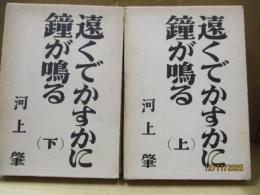 遠くでかすかに
鐘が鳴る
（上）
河上肇
遠くでかすかに
鐘が鳴る
（下）
河上肇
12/11/2025